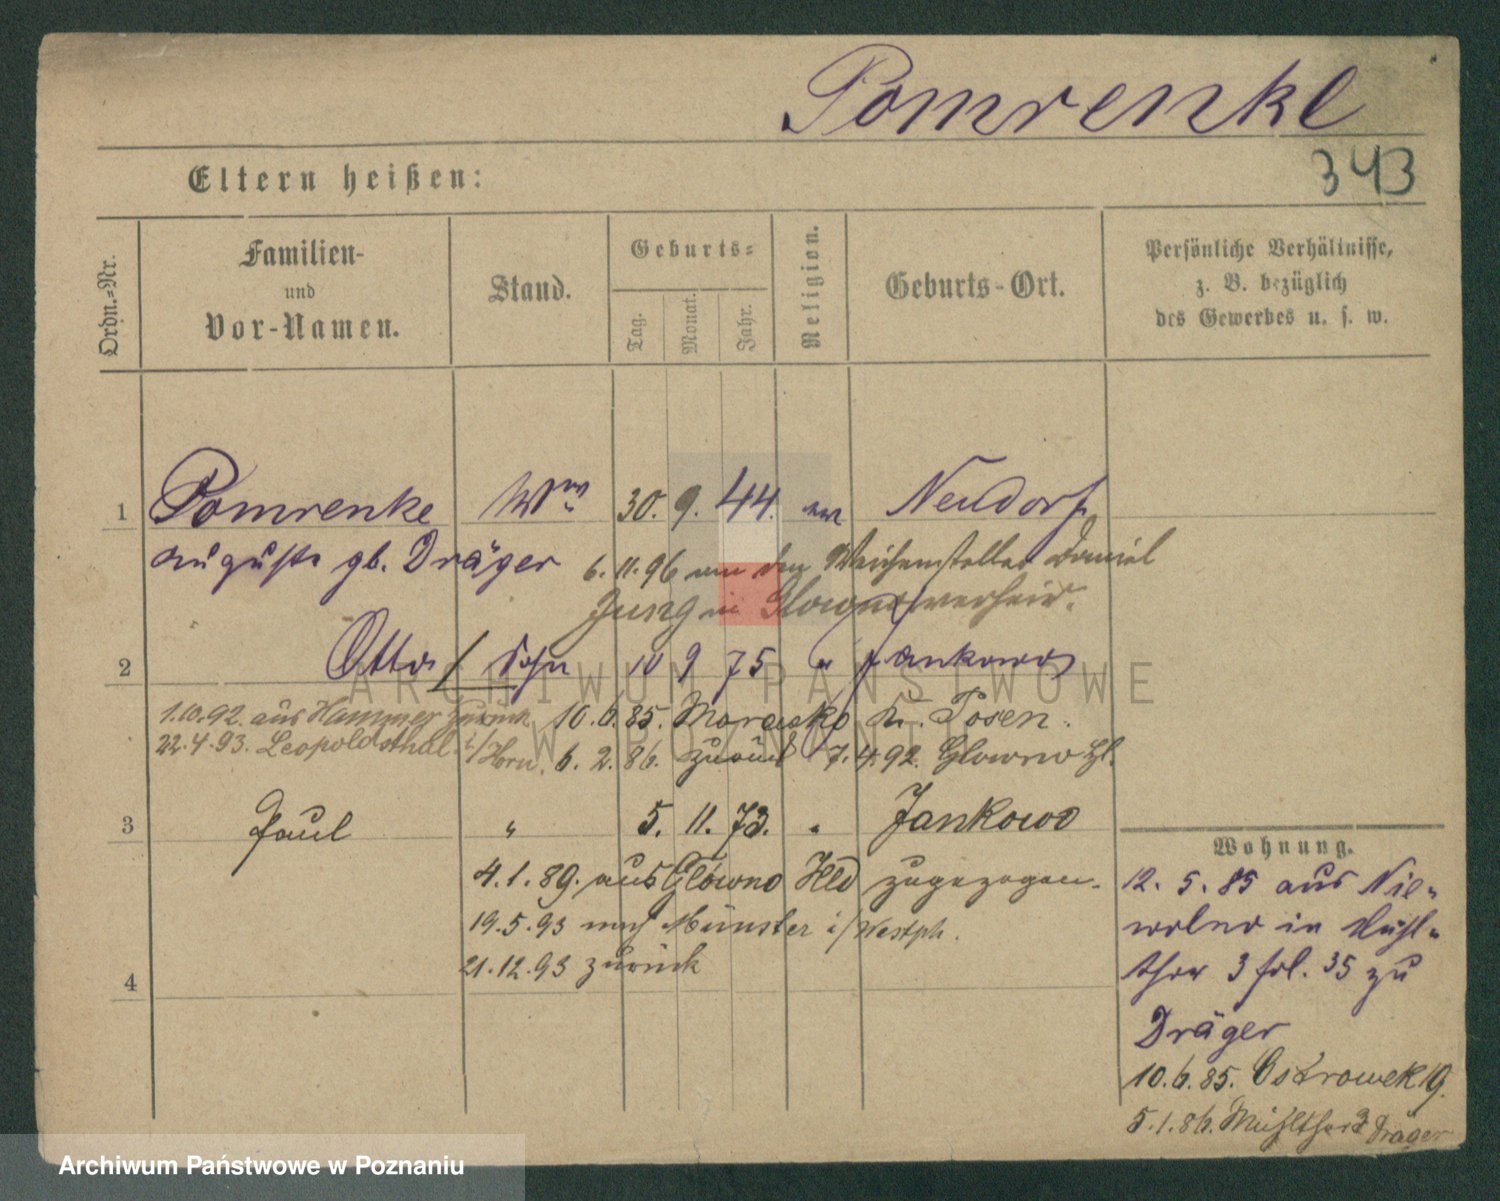 Pomrenke
343
Eltern heißen:
Ordn.-Nr.
Familien-
und
Vor-Namen.
Stand.
Geburts-
Tag.
Monat.
Jahr.
Religion.
Geburts-Ort.
Persönliche Verhältnisse,
z. B. bezüglich
des Gewerbes u. s. w.
1 Pomrenke Wwe 30. 9. 44. ev Neudorf
Auguste gb. Dräger
6. 11. 96 an den Weichensteller Daniel
Jung in Glowno verheir.
2 Otto / Sohn 10 9 75 " Jankowo
ARCHIWUM PAŃSTWOWE
W POZNANIU
1.10.92. aus Hammer zurück 10. 6. 85. Marcisko Kr. Posen.
22.4.93. Leopoldsthal i/Horn. 6. 2. 86. zurück 7.4.92. Glowno Hl.
3 Paul " 5. 11. 73. " Jankowo
4.1.89. aus Glowno Hld zugezogen.
19.5.93 nach Münster i/Westph.
21.12.93 zurück
4
Wohnung.
12. 5. 85 aus Nie-
wolno in Mühl-
thor 3 fol. 35 zu
Dräger
10.6.85. Ostrowek 19.
5.1.86. Mühlthor 3 Dräger
Archiwum Państwowe w Poznaniu